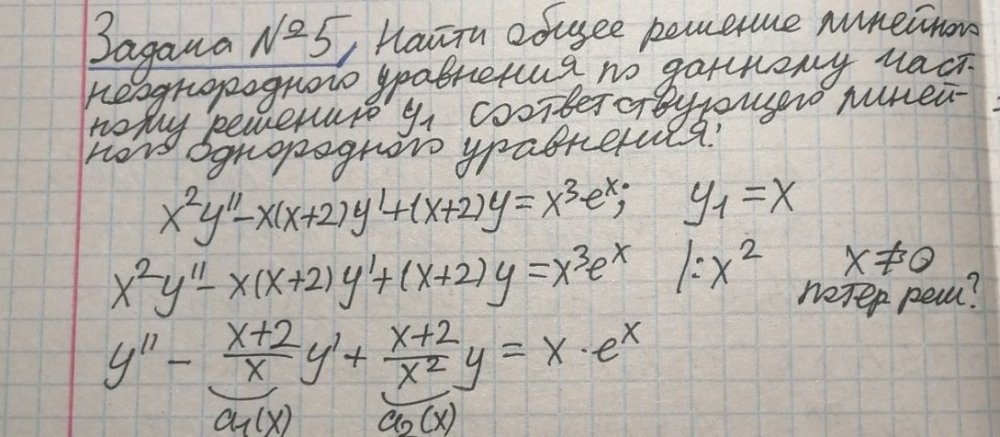 Задача №5, Найти общее решение линейного
неоднородного уравнения по данному част-
ному решению y₁ соответствующего линей-
ного однородного уравнения:
x²y'' - x(x+2)y' + (x+2)y = x³·eˣ; y₁ = x
x²y'' - x(x+2)y' + (x+2)y = x³eˣ |: x² x ≠ 0
потер реш?
y'' - \frac{x+2}{x} y' + \frac{x+2}{x²} y = x · eˣ
a₁(x) a₂(x)